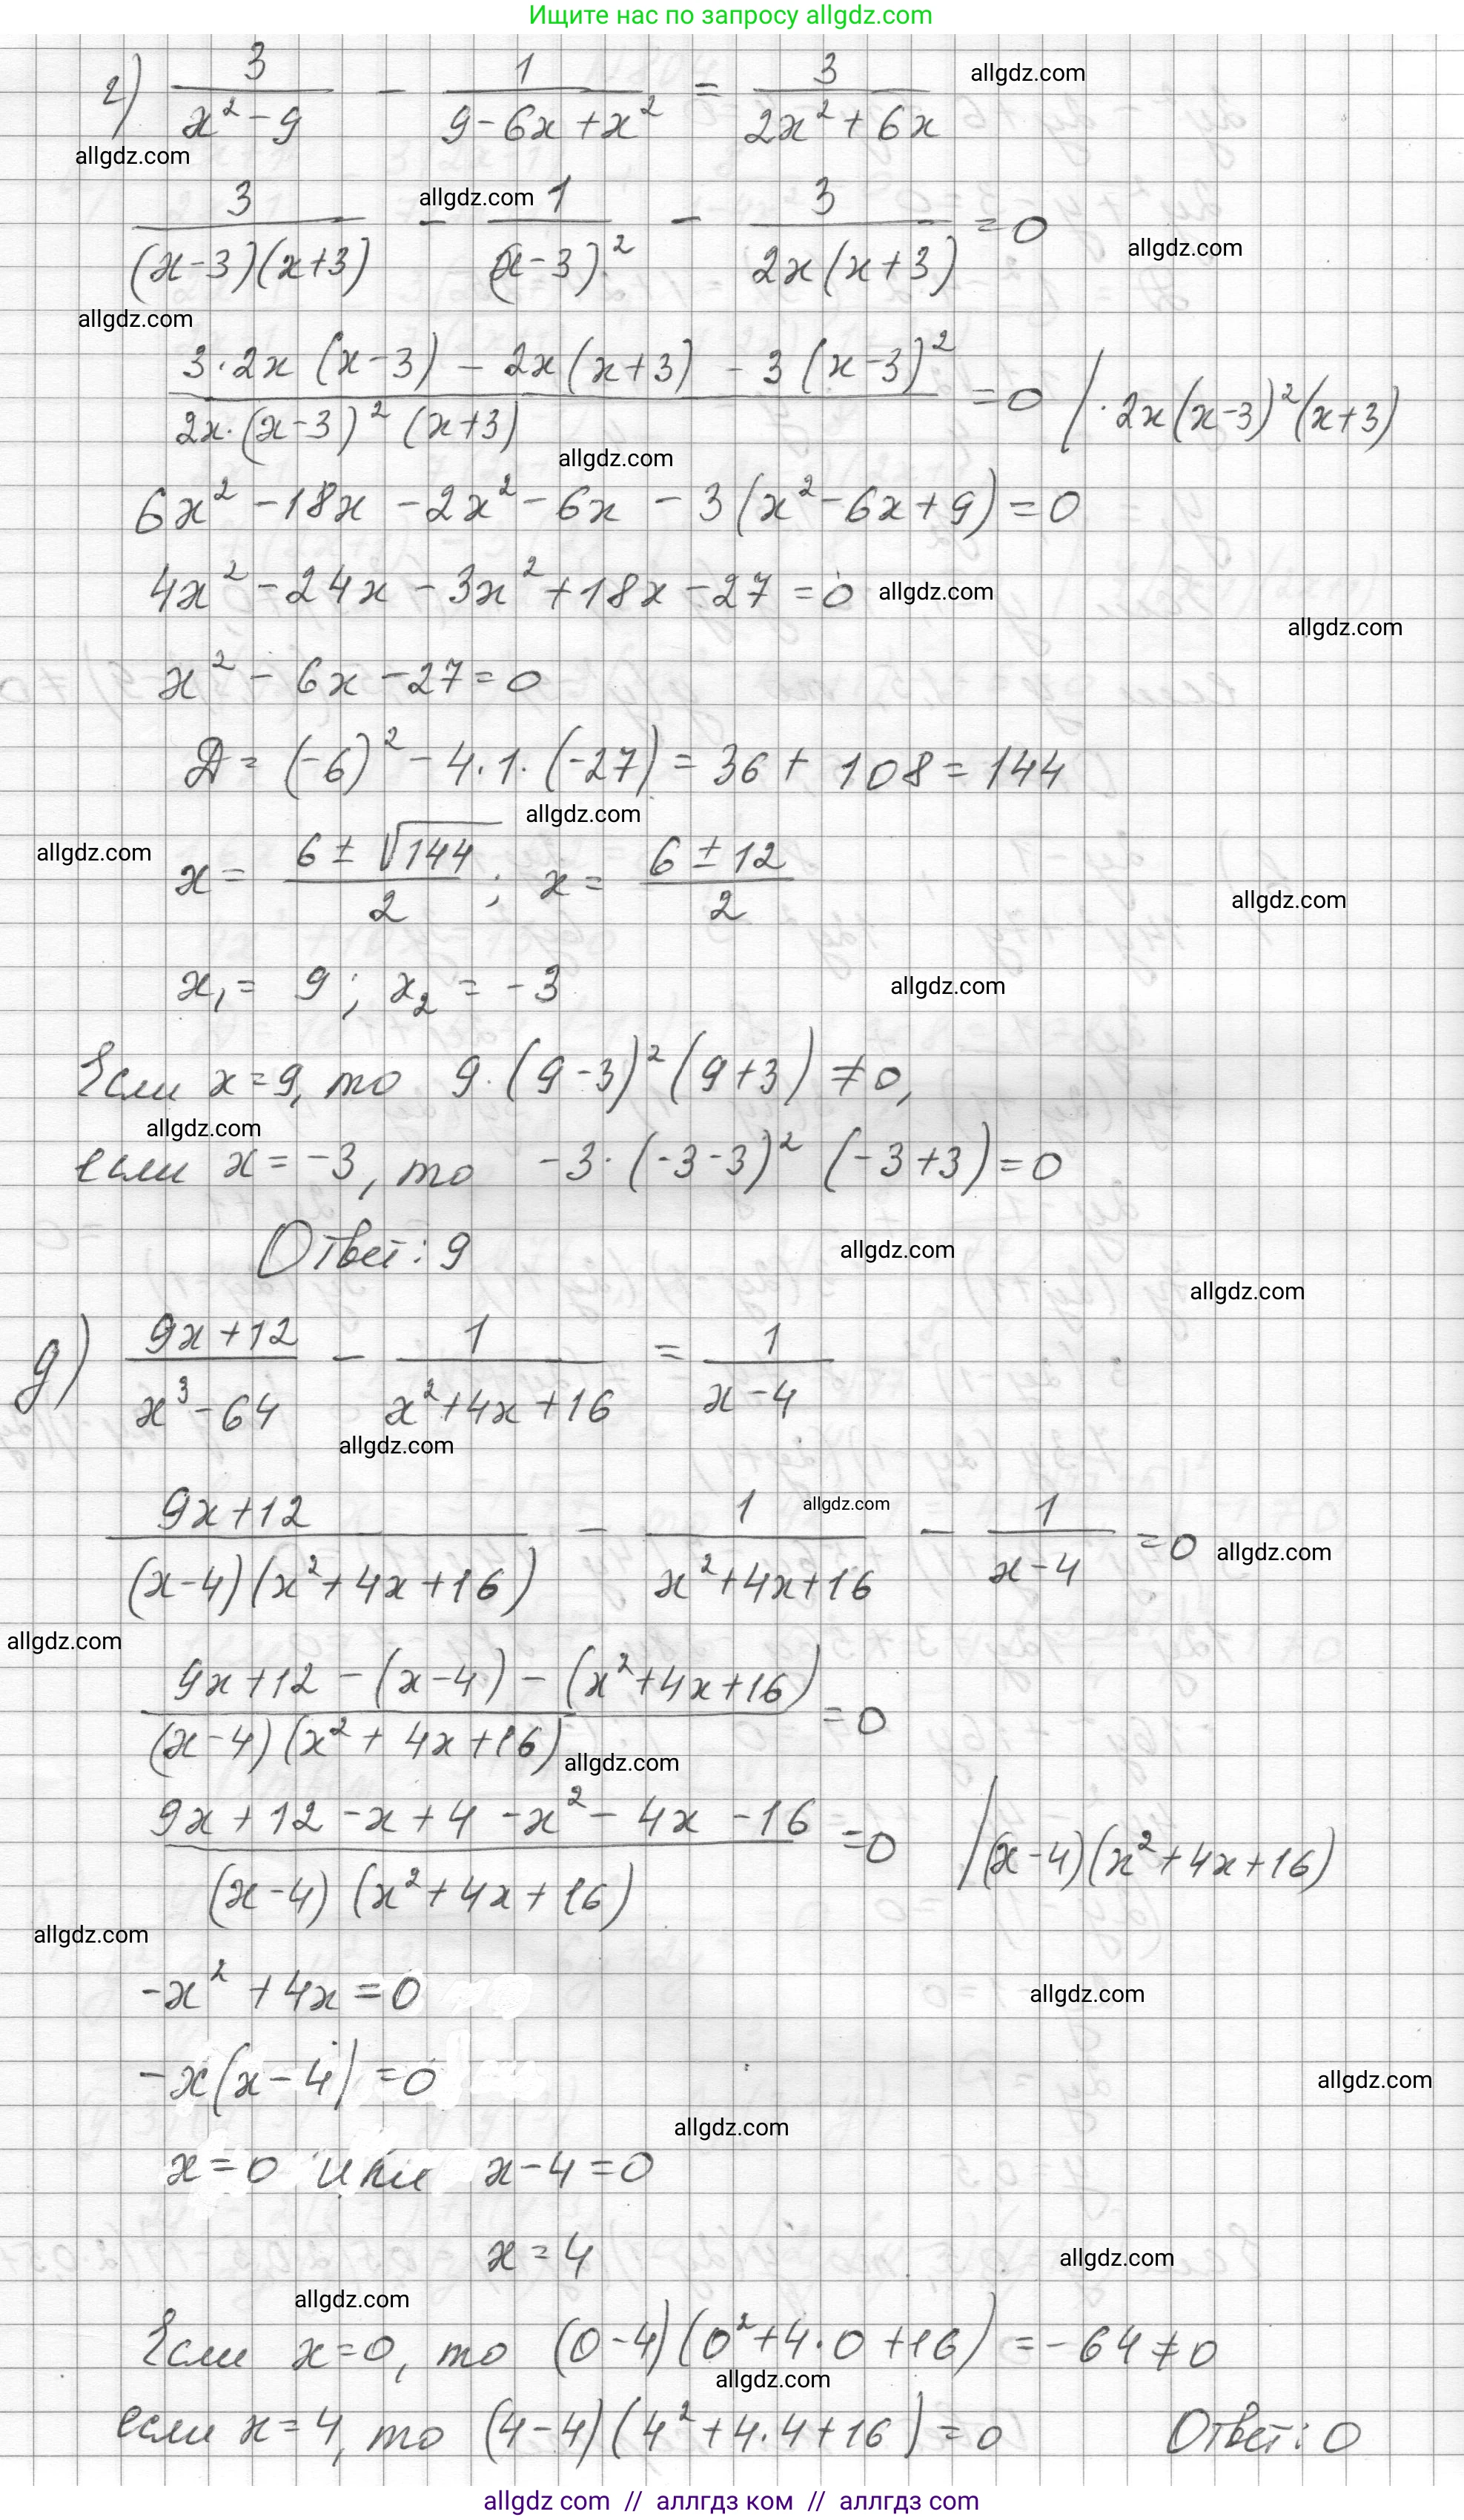 Ищите нас по запросу allgdz.com
г) 3/(x² - 9) - 1/(9 - 6x + x²) = 3/(2x² + 6x) allgdz.com
allgdz.com
3/((x-3)(x+3)) - 1/(x-3)² - 3/(2x(x+3)) = 0 allgdz.com allgdz.com
allgdz.com
(3·2x(x-3) - 2x(x+3) - 3(x-3)²)/(2x·(x-3)²(x+3)) = 0 | ·2x(x-3)²(x+3)
allgdz.com
6x² - 18x - 2x² - 6x - 3(x² - 6x + 9) = 0
4x² - 24x - 3x² + 18x - 27 = 0 allgdz.com
allgdz.com
x² - 6x - 27 = 0
Д = (-6)² - 4·1·(-27) = 36 + 108 = 144
allgdz.com
allgdz.com
x = (6 ± √144)/2 ; x = (6 ± 12)/2
allgdz.com
x₁ = 9 ; x₂ = -3 allgdz.com
Если x = 9, то 9·(9-3)²(9+3) ≠ 0,
allgdz.com
если x = -3, то -3·(-3-3)²(-3+3) = 0
Ответ: 9 allgdz.com
allgdz.com
д) (9x+12)/(x³ - 64) - 1/(x² + 4x + 16) = 1/(x-4)
allgdz.com
(9x+12)/((x-4)(x²+4x+16)) - 1/(x²+4x+16) - 1/(x-4) = 0 allgdz.com allgdz.com
allgdz.com
(9x+12 - (x-4) - (x²+4x+16))/((x-4)(x²+4x+16)) = 0
allgdz.com
(9x+12 - x + 4 - x² - 4x - 16)/((x-4)(x²+4x+16)) = 0 | (x-4)(x²+4x+16)
allgdz.com
-x² + 4x = 0
allgdz.com
-x(x-4) = 0
allgdz.com
allgdz.com
x = 0 или x - 4 = 0
x = 4
allgdz.com
allgdz.com
Если x = 0, то (0-4)(0²+4·0+16) = -64 ≠ 0
allgdz.com
если x = 4, то (4-4)(4²+4·4+16) = 0 Ответ: 0
allgdz com // аллгдз ком // allgdz com